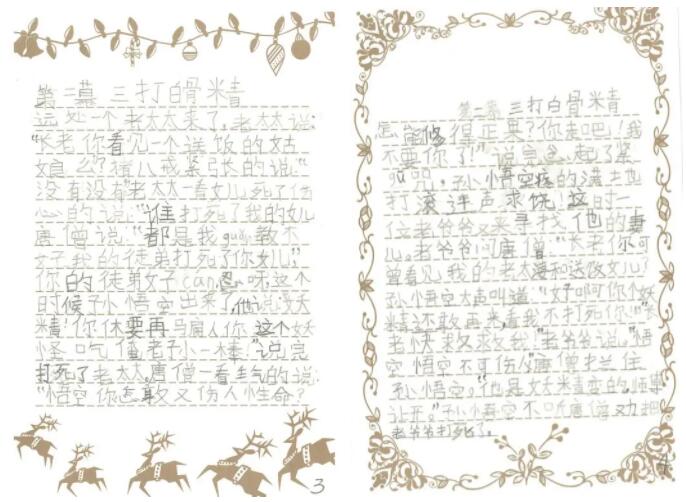 第二幕 三打白骨精
远处一个老太太来了，老太太说：
“长老你看见一个送饭的姑
娘么？”猪八戒紧张的说：“
没有没有”老太太一看女儿死了伤
心的说：“谁打死了我的女儿
唐僧说：“都是我guǎn教不
好我的徒弟打死了你女儿”
你的徒弟好can忍呀，这个
时候孙悟空出来了，他说：“妖
精！你休要再骗人你这个妖
怪吃俺老孙一棒！”说完
打死了老太太，唐僧一看生气的说
“悟空你怎敢又伤人性命？
3
第二幕 三打白骨精
怎能修得正果？你走吧！我
不要你了！”说完念起了紧
咒，孙悟空疼的满地
打滚连声求饶，这时一
位老爷爷又来寻找他的妻
儿。老爷爷问唐僧：“长老你可
曾看见我的老太婆和送饭女儿！
孙悟空大声叫道：“好啊你个妖
精还敢再来，看我不打死你！”“长
老快救救我！”老爷爷说。“悟
空悟空不可伤人”唐僧拦住
孙悟空。“他是妖精变的，师傅
让开。”孙悟空不听唐僧劝把
老爷爷打死了。
4